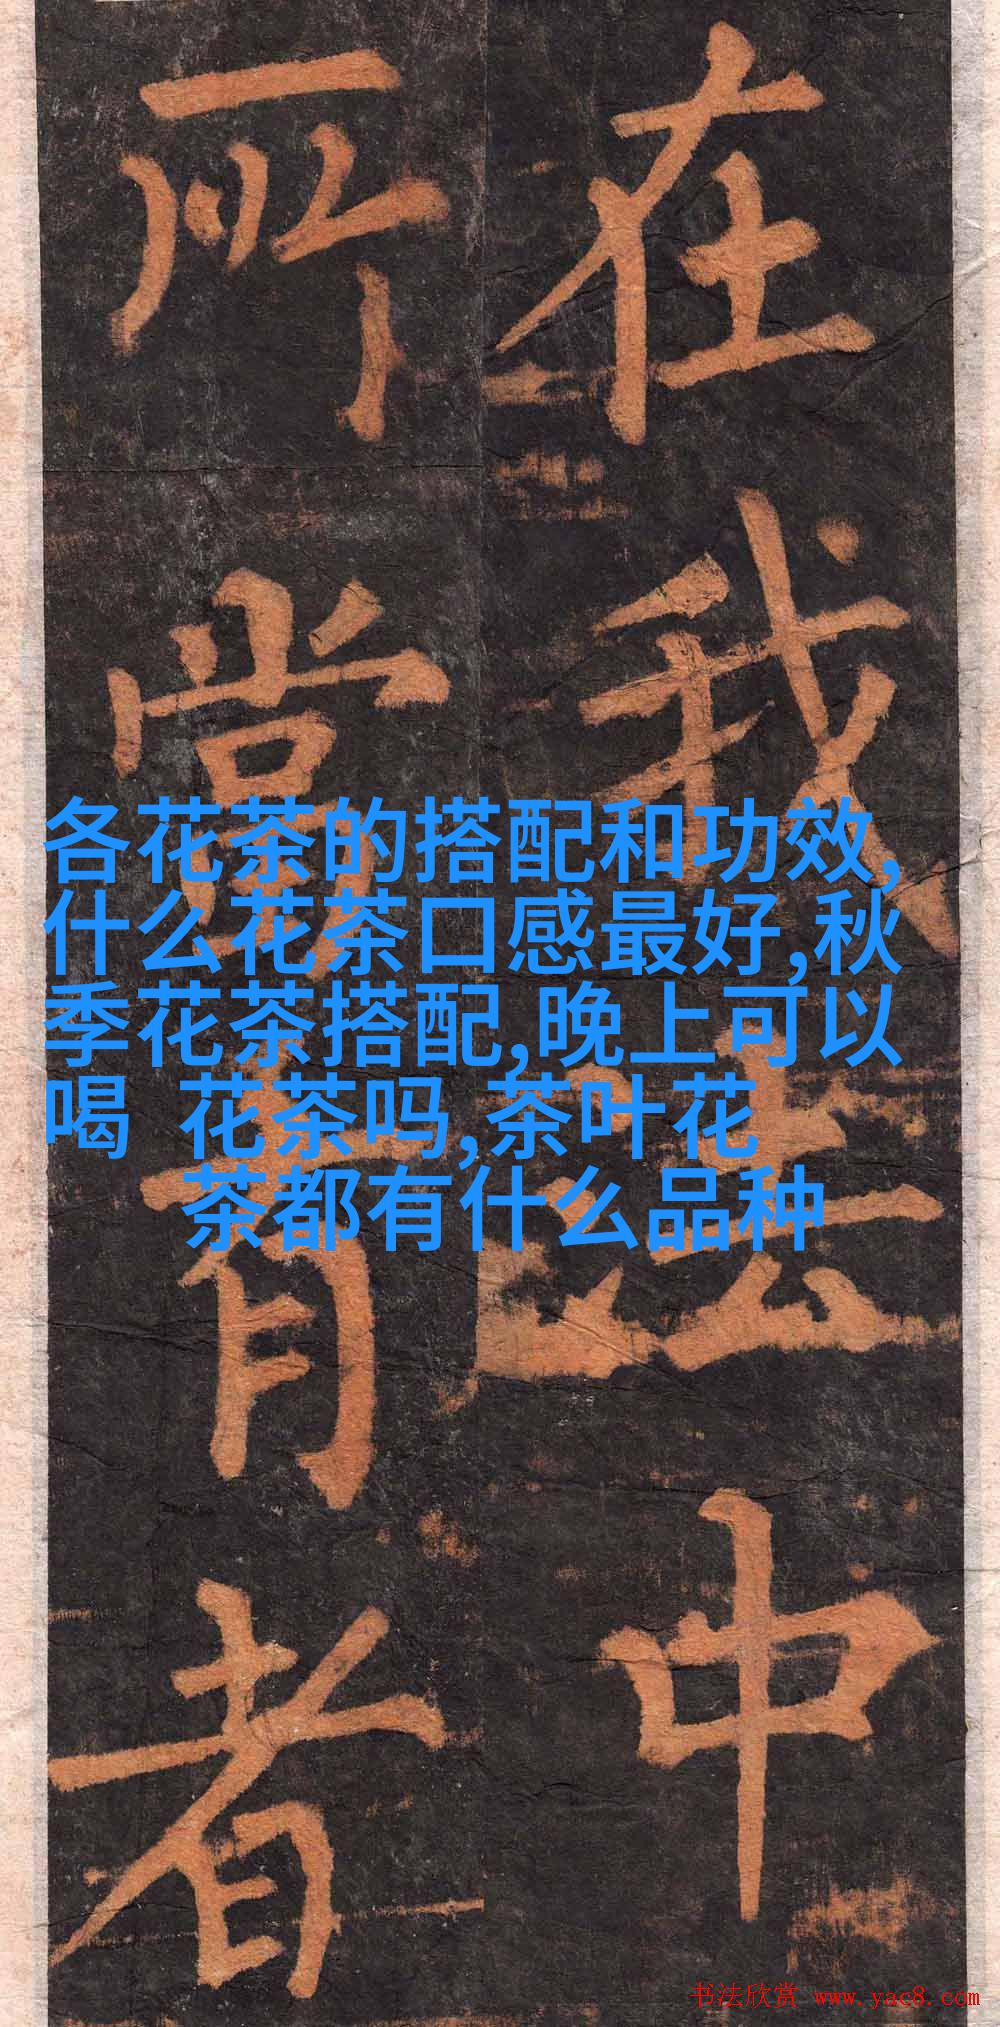 在我法中
所者
各花茶的搭配和功效,
什么花茶口感最好,秋
季花茶搭配,晚上可以
喝 花茶吗,茶叶花
茶都有什么品种
书法欣赏 www.yac8.com